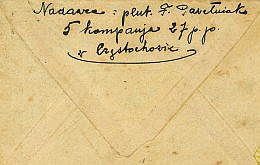 Nadawca: plut. F. Pawełniak
5 kompanja 27 p.p.
w Częstochowie